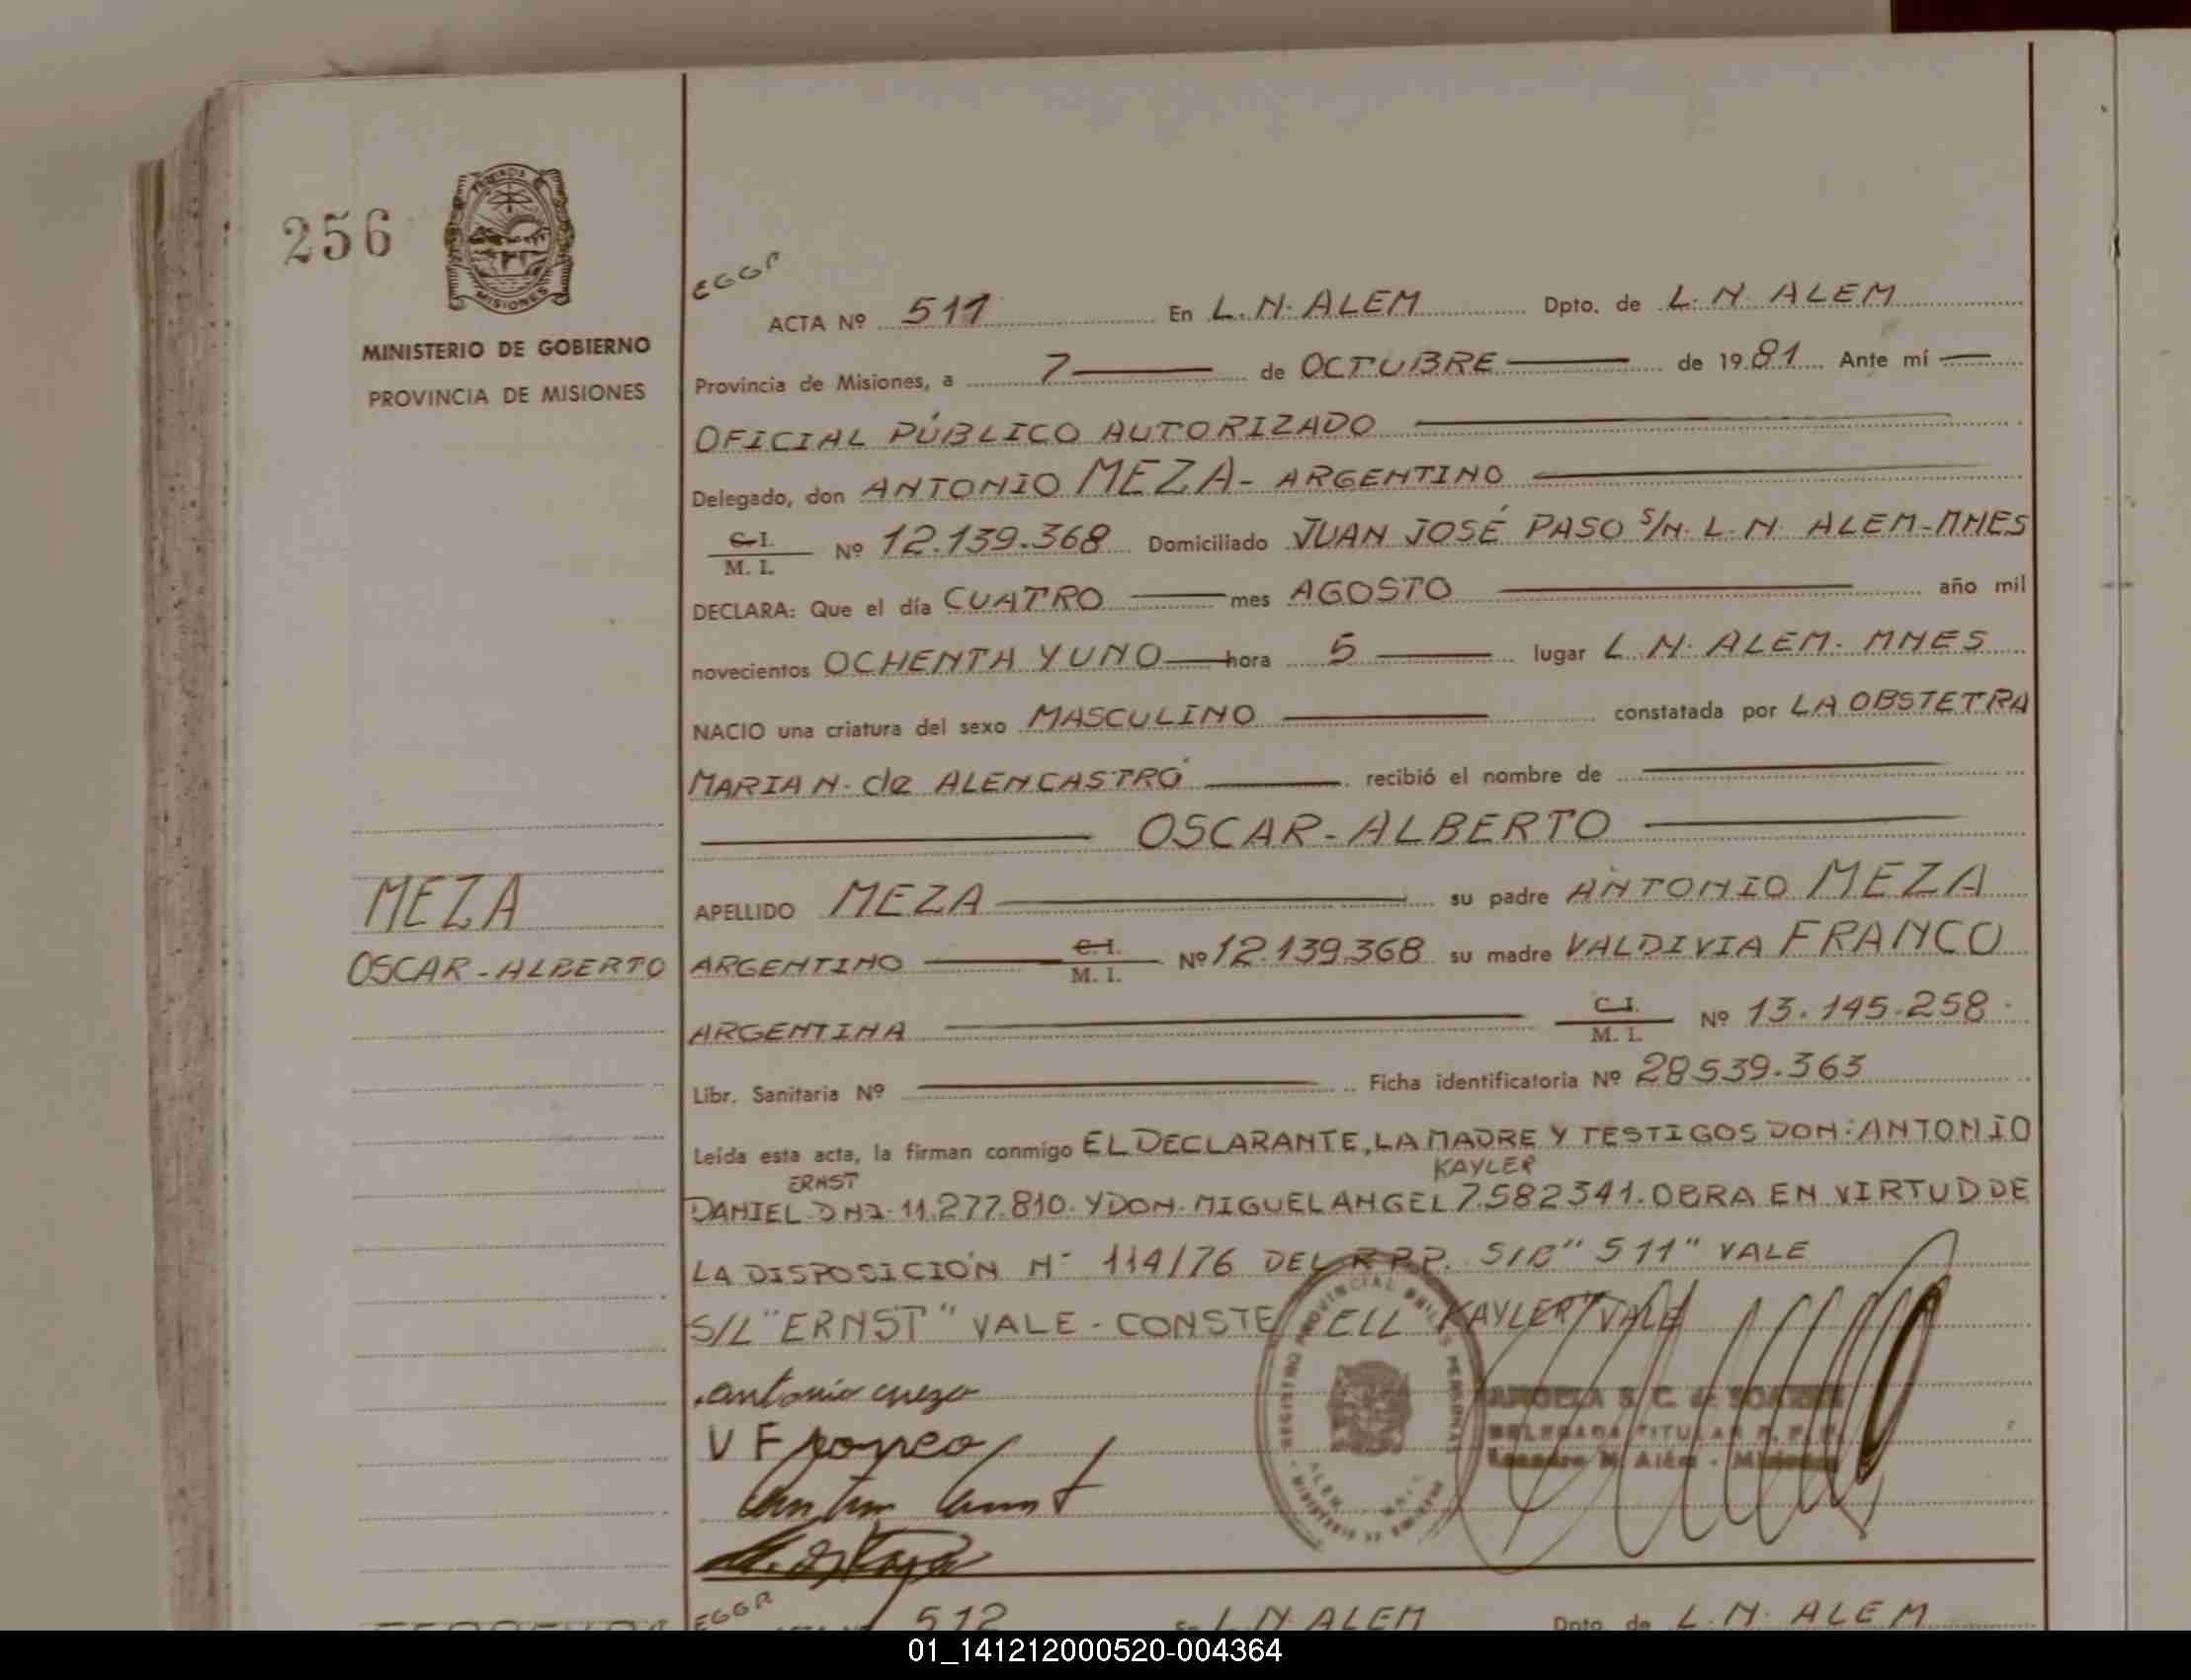 256
MISIONES
MINISTERIO DE GOBIERNO
PROVINCIA DE MISIONES
EGGR
ACTA Nº 511 En L. N. ALEM Dpto. de L. N. ALEM
Provincia de Misiones, a 7 de OCTUBRE de 1981 Ante mí
OFICIAL PÚBLICO AUTORIZADO
Delegado, don ANTONIO MEZA - ARGENTINO
C.I.
M. I. Nº 12.139.368 Domiciliado JUAN JOSÉ PASO S/N. L. N. ALEM-MNES
DECLARA: Que el día CUATRO mes AGOSTO año mil
novecientos OCHENTA Y UNO hora 5 lugar L. N. ALEM. MNES
NACIO una criatura del sexo MASCULINO constatada por LA OBSTETRA
MARIA N. de ALENCASTRO recibió el nombre de
OSCAR-ALBERTO
MEZA
APELLIDO MEZA su padre ANTONIO MEZA
OSCAR-ALBERTO
ARGENTINO C.I. M. I. Nº 12.139.368 su madre VALDIVIA FRANCO
ARGENTINA C.I. M. I. Nº 13.145.258
Libr. Sanitaria Nº Ficha identificatoria Nº 28539.363
Leída esta acta, la firman conmigo EL DECLARANTE, LA MADRE Y TESTIGOS DON: ANTONIO
ERNST KAYLER
DANIEL DNI 11.277.810. Y DON. MIGUEL ANGEL 7.582341. OBRA EN VIRTUD DE
LA DISPOSICIÓN Nº 114/76 DEL R.P.P. S/B "511" VALE
S/L "ERNST" VALE - CONSTE KAYLER" VALE
antonio meza
V Franco
REGISTRO PROVINCIAL DE LAS PERSONAS
ANGELA S. C. de
DELEGADA TITULAR R. P. P.
Leandro N. Alem - Misiones
EGGR
512 En L. N. ALEM Dpto. de L. N. ALEM
01_141212000520-004364